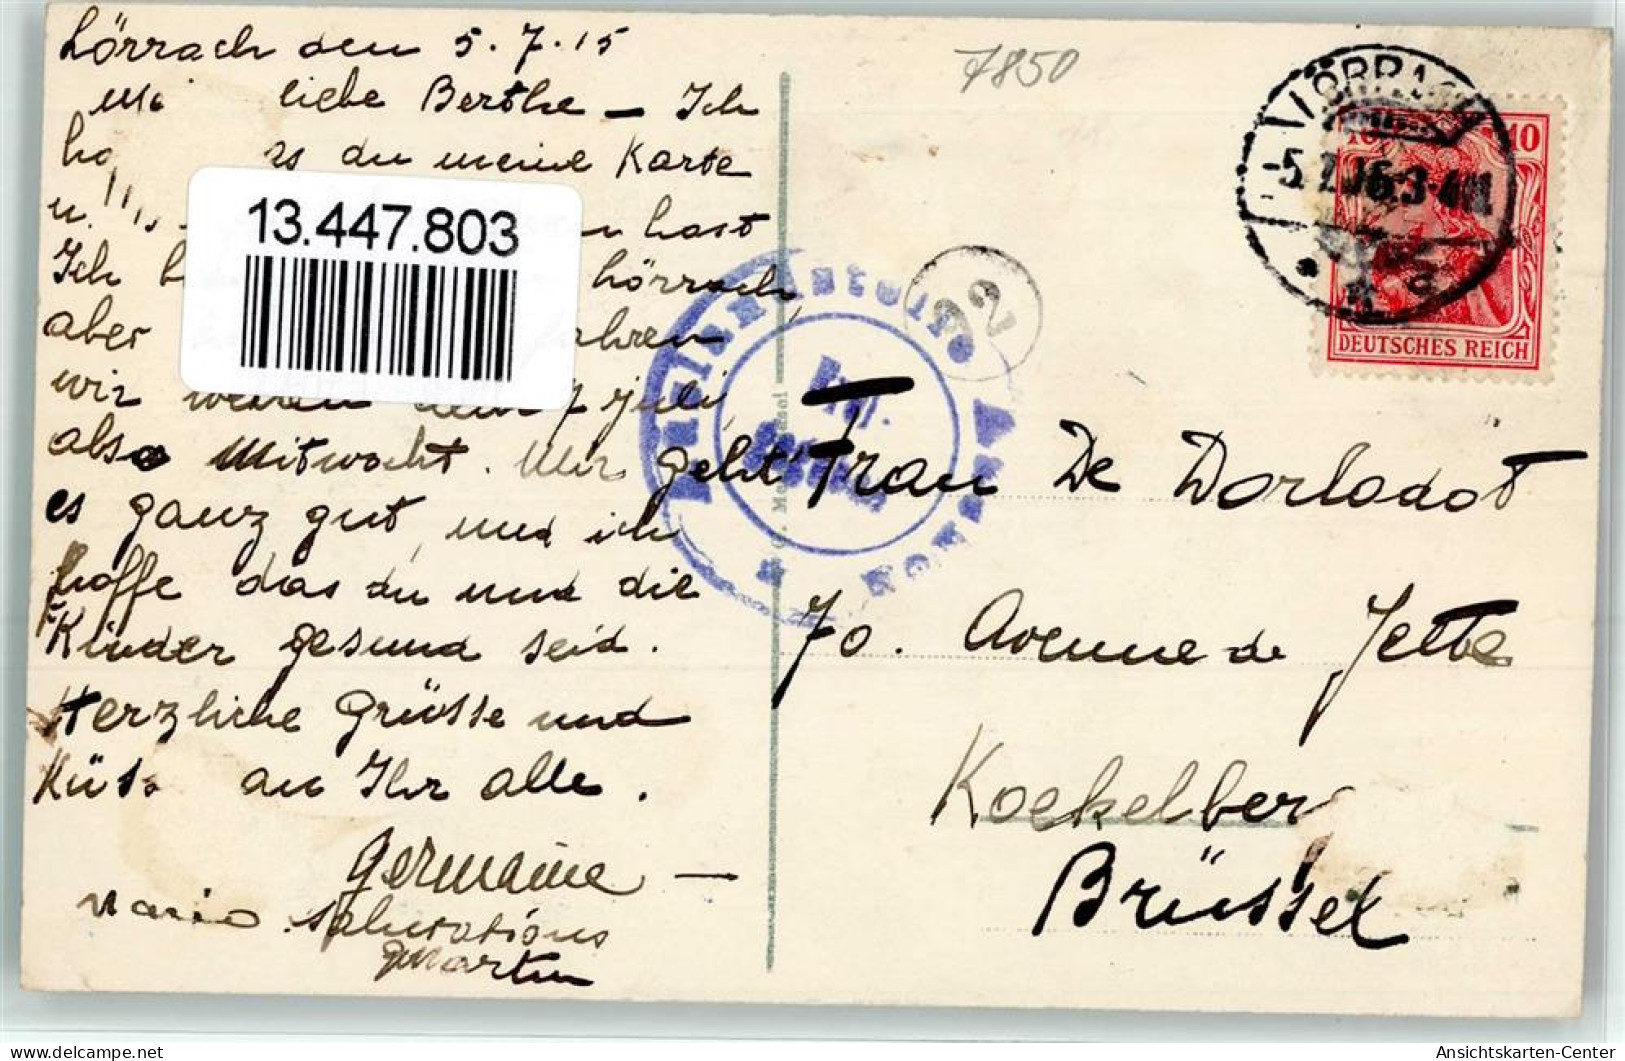 Lörrach den 5.7.15
liebe Berthe – Ich
du meine Karte
u. hast
Ich Lörrach,
aber
wir juli,
also Mitwocht. Mir geht
es ganz gut, und ich
hoffe das du und die
Kinder gesund seid.
Herzliche Grüsse und
Küss an Ihr alle.
Germaine –
salutations
13.447.803
7850
LÖRRACH
10
DEUTSCHES REICH
2
Frau De Dorlodot
70. Avenue de Jette
Koekelber
Brüssel
Ansichtskarten-Center